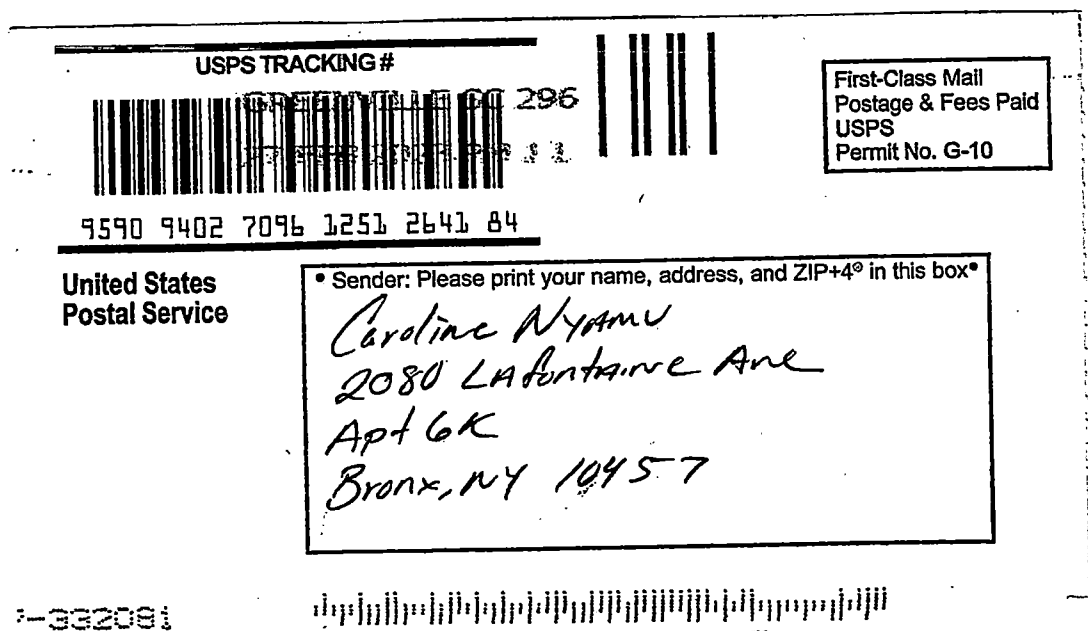 USPS TRACKING #
GREENVILLE SC 296
9590 9402 7096 1251 2641 84
First-Class Mail
Postage & Fees Paid
USPS
Permit No. G-10
United States
Postal Service
• Sender: Please print your name, address, and ZIP+4® in this box•
Caroline Nyamu
2080 Lafontaine Ave
Apt 6K
Bronx, NY 10457
-332081